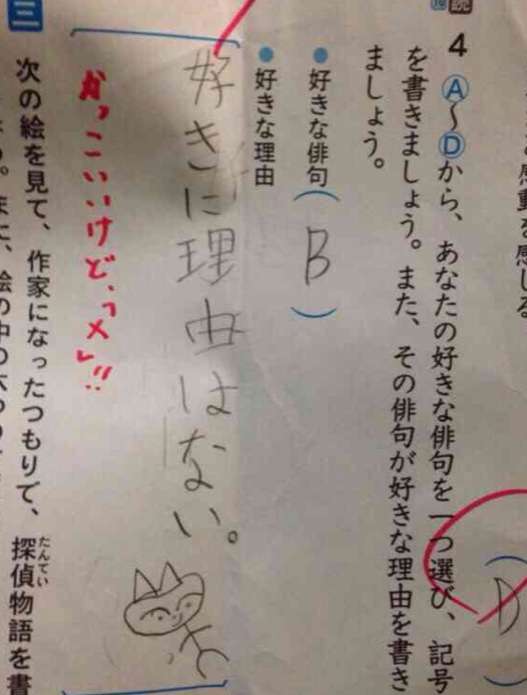 を感動を感じる
読
4 Ⓐ〜Ⓓから、あなたの好きな俳句を一つ選び、記号
を書きましょう。また、その俳句が好きな理由を書き
ましょう。
(D)
●好きな俳句(B)
●好きな理由
好きに理由はない。
かっこいいけど、「メ」!!
三
次の絵を見て、作家になったつもりで、探偵物語を書
たんてい